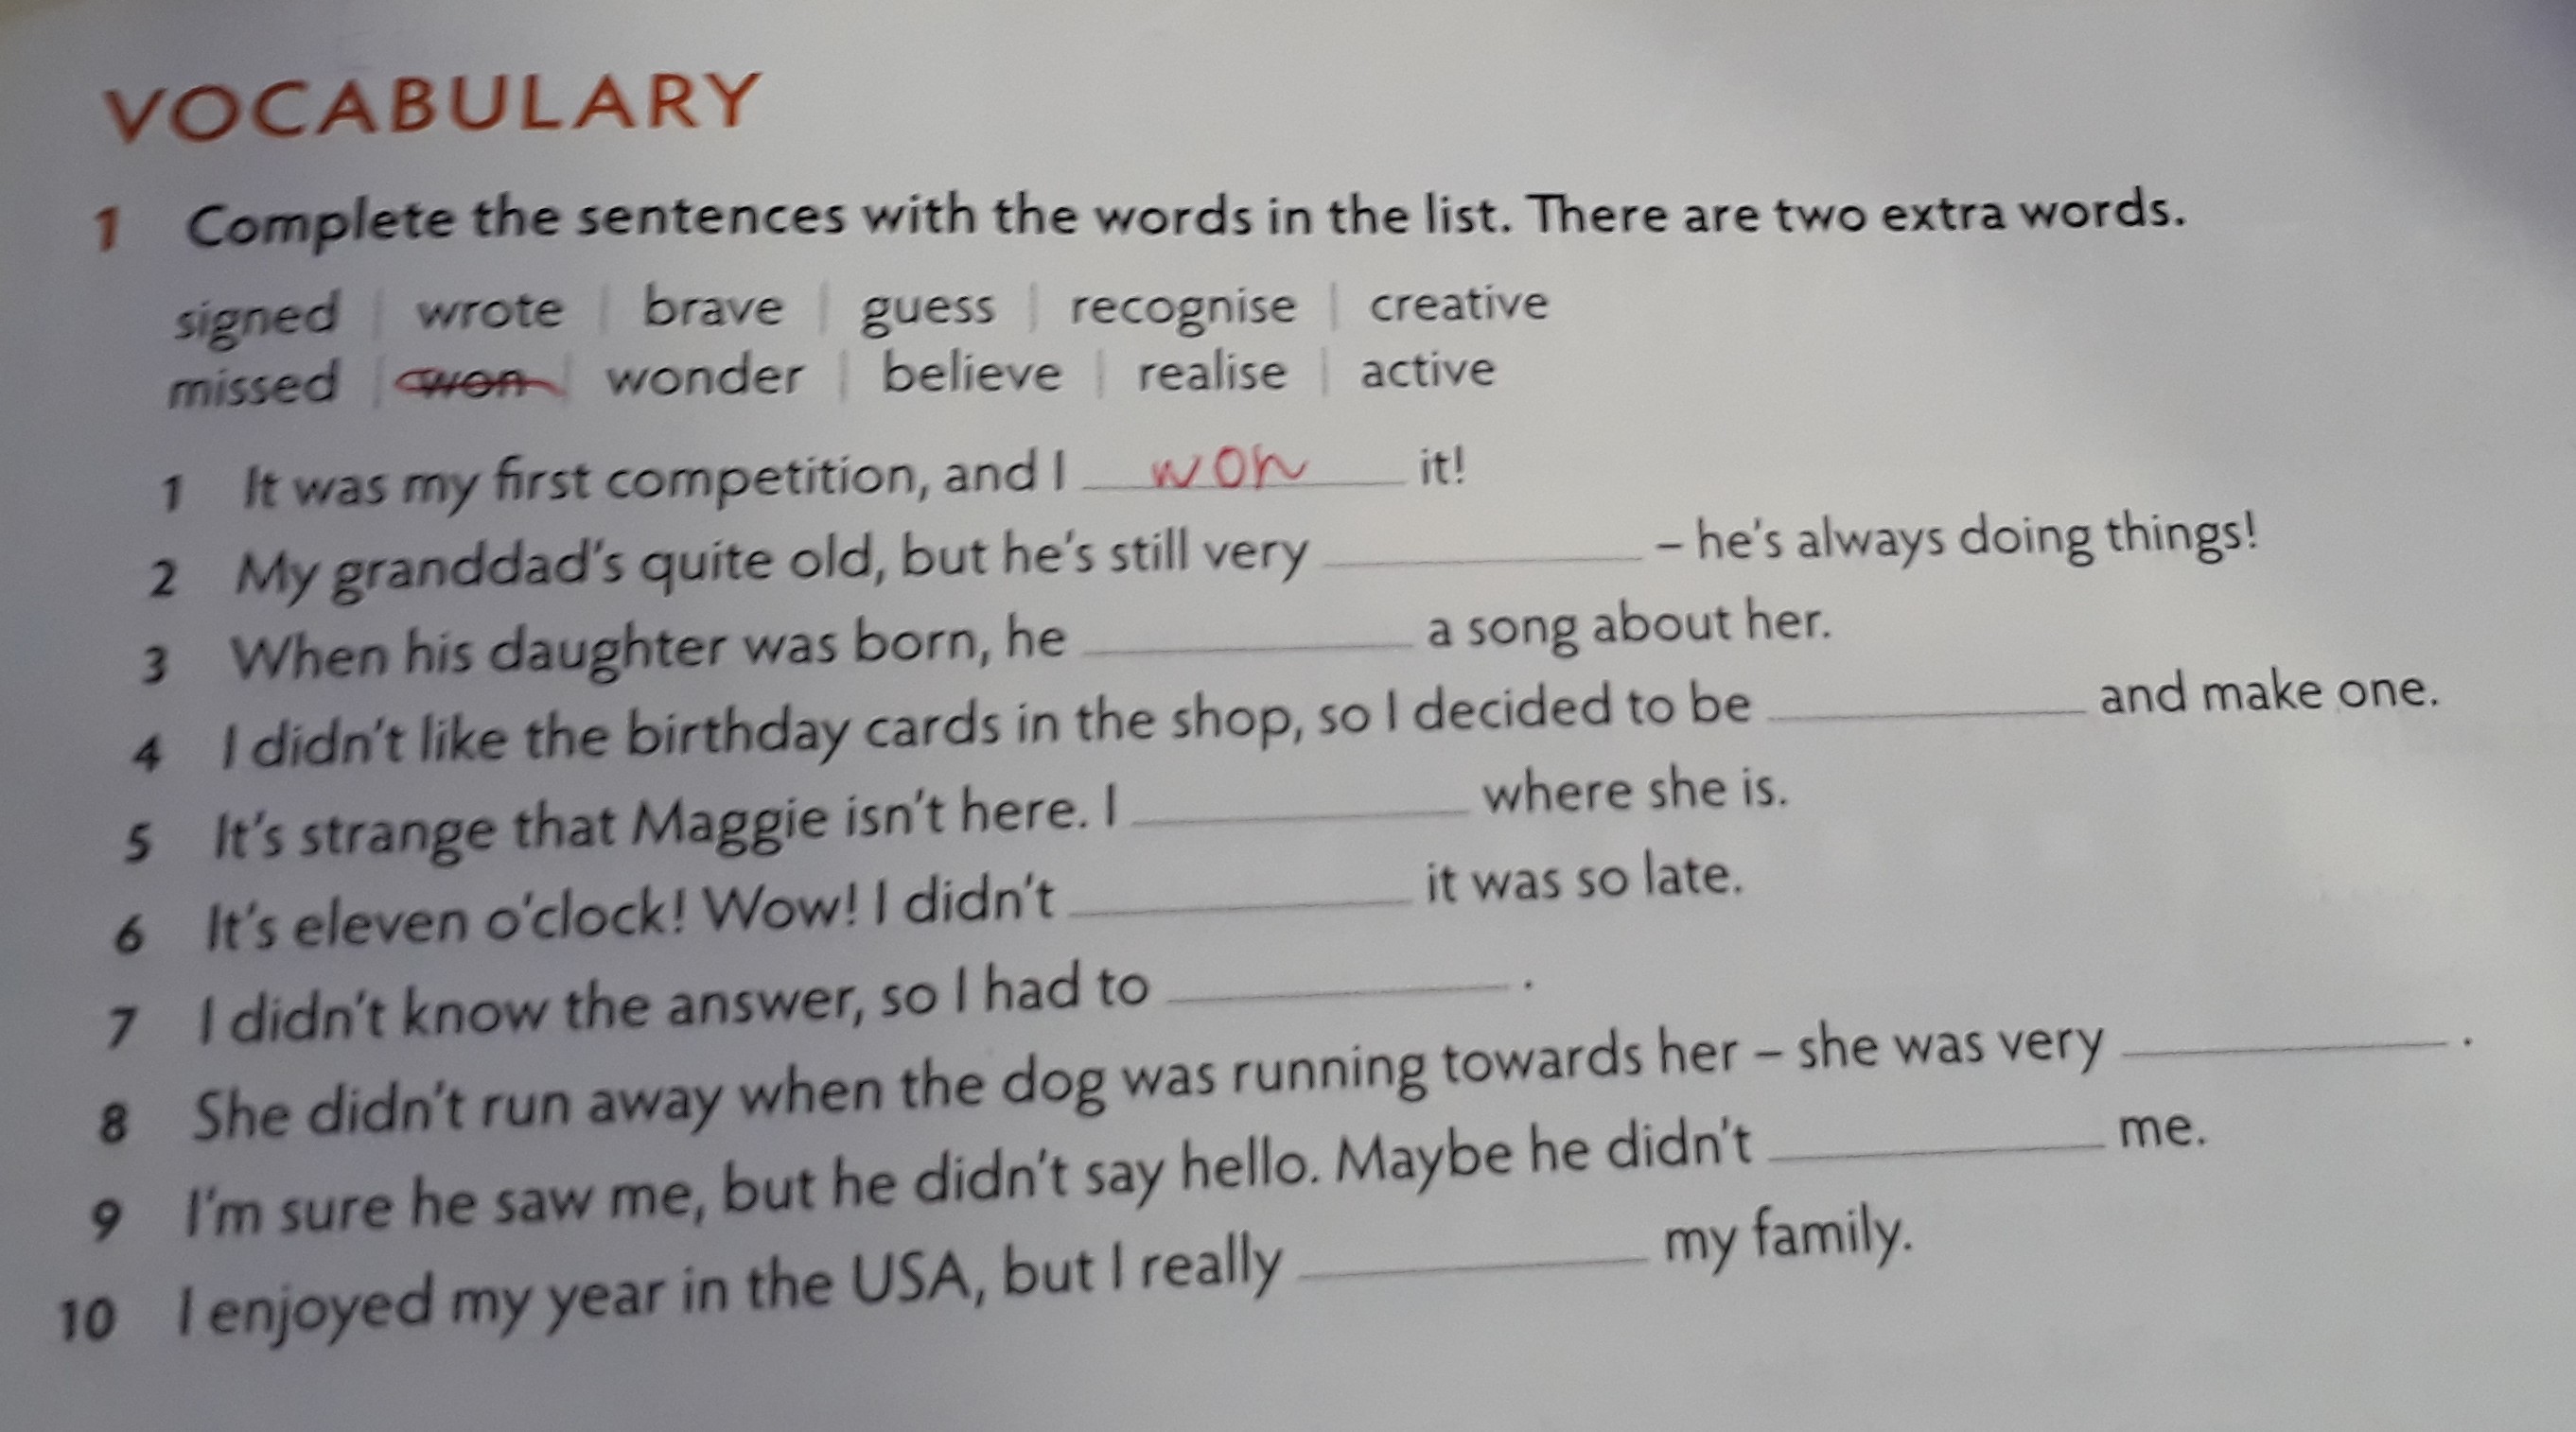 VOCABULARY
1 Complete the sentences with the words in the list. There are two extra words.
signed | wrote | brave | guess | recognise | creative
missed | won | wonder | believe | realise | active
1 It was my first competition, and I won it!
2 My granddad's quite old, but he's still very __________ – he's always doing things!
3 When his daughter was born, he __________ a song about her.
4 I didn't like the birthday cards in the shop, so I decided to be __________ and make one.
5 It's strange that Maggie isn't here. I __________ where she is.
6 It's eleven o'clock! Wow! I didn't __________ it was so late.
7 I didn't know the answer, so I had to __________ .
8 She didn't run away when the dog was running towards her – she was very __________ .
9 I'm sure he saw me, but he didn't say hello. Maybe he didn't __________ me.
10 I enjoyed my year in the USA, but I really __________ my family.